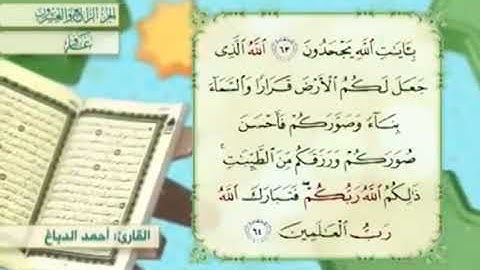 الجزء الرابع والعشرون
غافر
بِـَٔايَـٰتِ ٱللَّهِ يَجْحَدُونَ ٦٣ ٱللَّهُ ٱلَّذِى
جَعَلَ لَكُمُ ٱلْأَرْضَ قَرَارًا وَٱلسَّمَآءَ
بِنَآءً وَصَوَّرَكُمْ فَأَحْسَنَ
صُوَرَكُمْ وَرَزَقَكُم مِّنَ ٱلطَّيِّبَـٰتِ ۚ
ذَٰلِكُمُ ٱللَّهُ رَبُّكُمْ ۖ فَتَبَارَكَ ٱللَّهُ
رَبُّ ٱلْعَـٰلَمِينَ ٦٤
القارئ: أحمد الدباغ